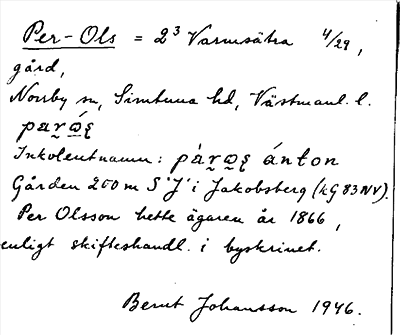 Per-Ols = 2³ Varmsätra 4/29,
gård,
Norrby sn, Simtuna hd, Västmanl. l.
Inkolentnamn: ánton
Gården 200 m S 'J' i Jakobsberg (kG 83 NV).
Per Olsson hette ägaren år 1866,
enligt skifteshandl. i byskrinet.
Bernt Johansson 1946.